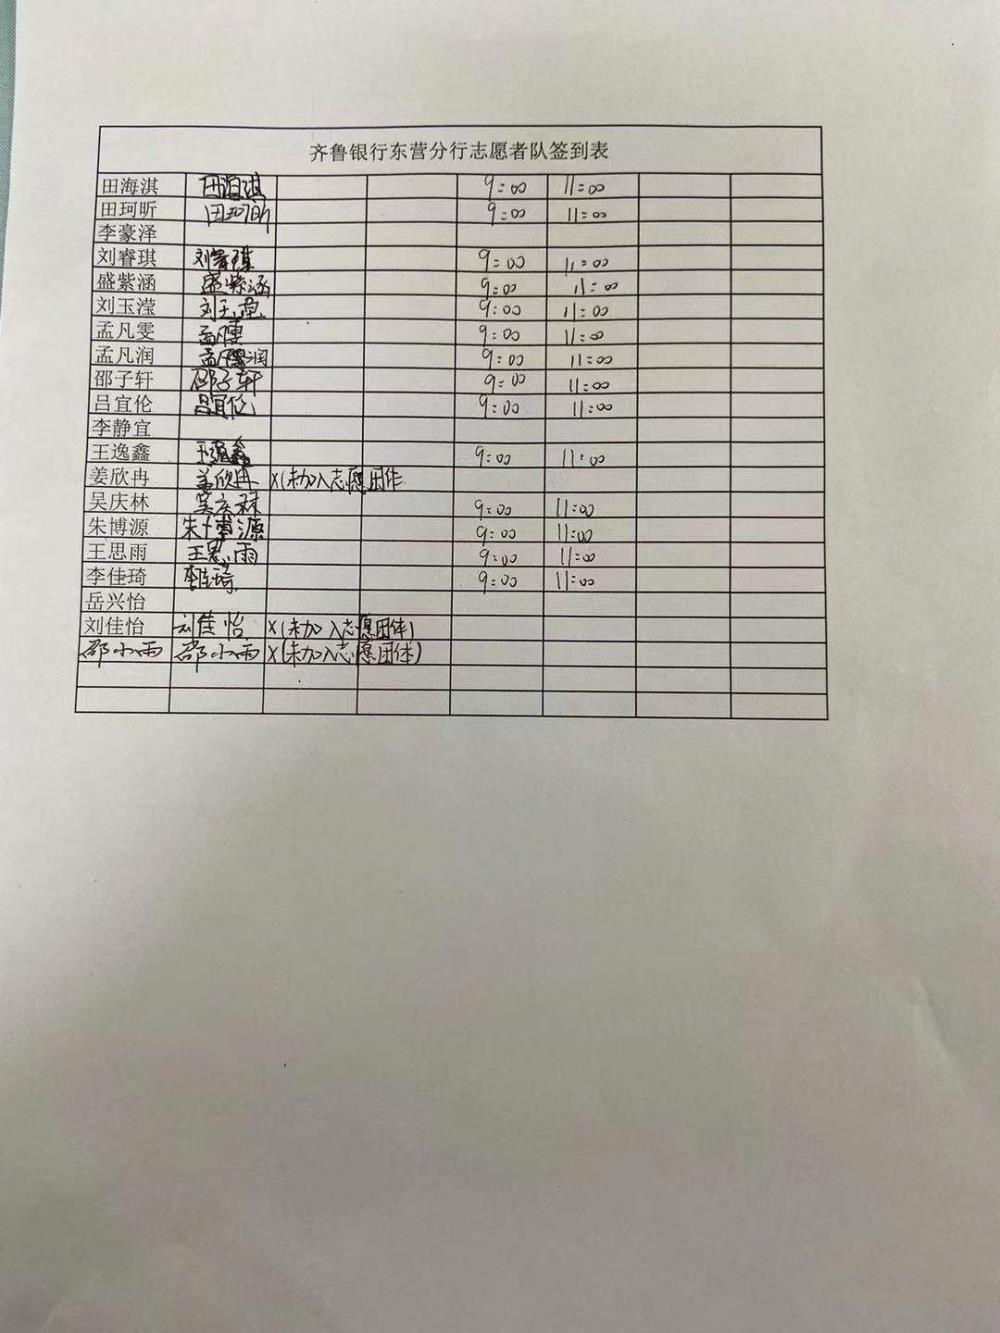 齐鲁银行东营分行志愿者队签到表
田海淇 田海淇 9:00 11:00
田珂昕 田珂昕 9:00 11:00
李豪泽
刘睿琪 刘睿琪 9:00 11:00
盛紫涵 盛紫涵 9:00 11:00
刘玉滢 刘玉滢 9:00 11:00
孟凡雯 孟凡雯 9:00 11:00
孟凡润 孟凡润 9:00 11:00
邵子轩 邵子轩 9:00 11:00
吕宜伦 吕宜伦 9:00 11:00
李静宜
王逸鑫 王逸鑫 9:00 11:00
姜欣冉 姜欣冉 X(未加入志愿团体
吴庆林 吴庆林 9:00 11:00
朱博源 朱博源 9:00 11:00
王思雨 王思雨 9:00 11:00
李佳琦 李佳琦 9:00 11:00
岳兴怡
刘佳怡 刘佳怡 X(未加入志愿团体)
邵小雨 邵小雨 X(未加入志愿团体)